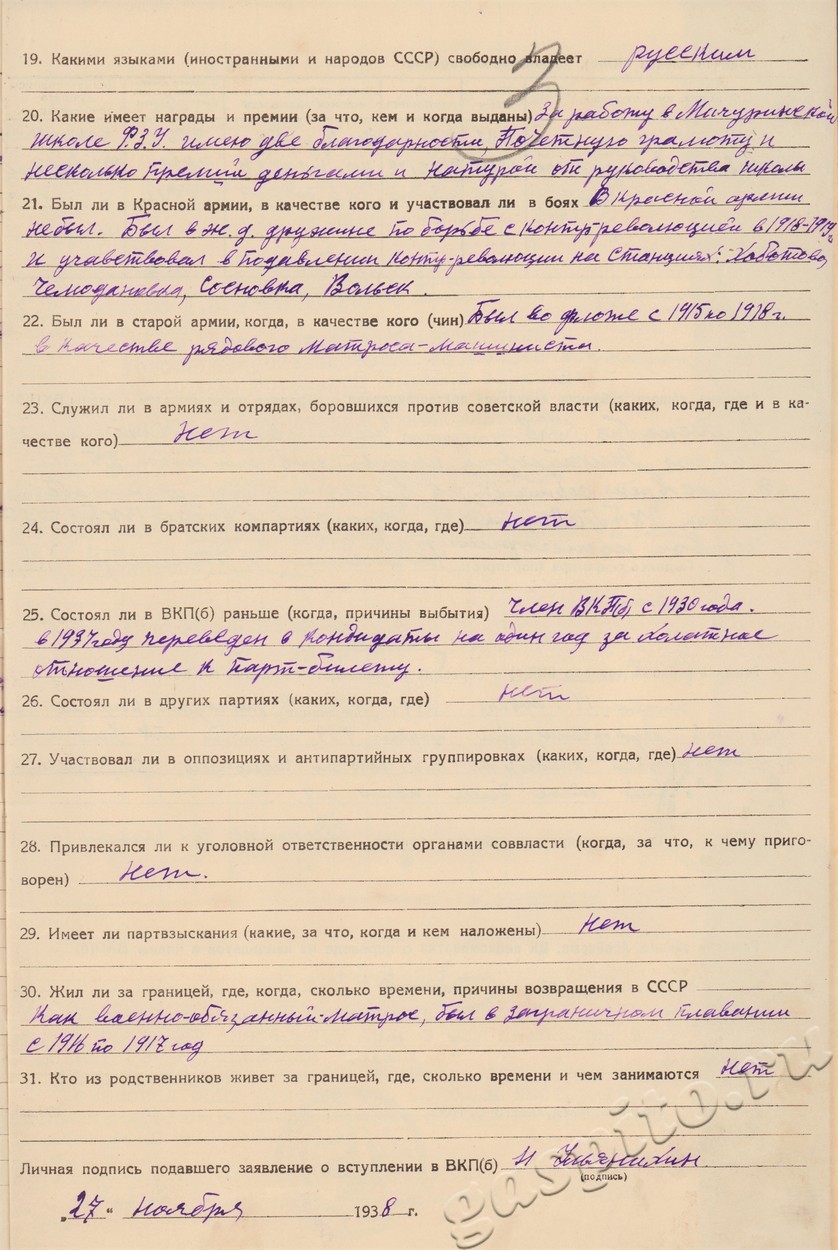 19. Какими языками (иностранными и народов СССР) свободно владеет русским
3
20. Какие имеет награды и премии (за что, кем и когда выданы) За работу в Мичуринской
школе ФЗУ. имею две благодарности, Почетную грамоту и
несколько премий деньгами и натурой от руководства школы
21. Был ли в Красной армии, в качестве кого и участвовал ли в боях В красной армии
небыл. Был в ж.д. дружине по борьбе с контр-революцией в 1918-1919
и учавствовал в подавлении контр-революции на станциях: Хоботово,
Чемодановка, Сосновка, Вольск.
22. Был ли в старой армии, когда, в качестве кого (чин) Был во флоте с 1915 по 1918 г.
в качестве рядового матроса-машиниста.
23. Служил ли в армиях и отрядах, боровшихся против советской власти (каких, когда, где и в ка-
честве кого) Нет
24. Состоял ли в братских компартиях (каких, когда, где) Нет
25. Состоял ли в ВКП(б) раньше (когда, причины выбытия) член ВКП(б) с 1930 года.
в 1937 году переведен в кандидаты на один год за холатное
отношение к парт-билету.
26. Состоял ли в других партиях (каких, когда, где) нет
27. Участвовал ли в оппозициях и антипартийных группировках (каких, когда, где) нет
28. Привлекался ли к уголовной ответственности органами соввласти (когда, за что, к чему приго-
ворен) Нет.
29. Имеет ли партвзыскания (какие, за что, когда и кем наложены) Нет
30. Жил ли за границей, где, когда, сколько времени, причины возвращения в СССР
Как военно-обязанный-матрос, был в заграничном плавании
с 1916 по 1917 год
31. Кто из родственников живет за границей, где, сколько времени и чем занимаются Нет
Личная подпись подавшего заявление о вступлении в ВКП(б) Н Ульянихин
(подпись)
„27" ноября 1938 г.
gaspito.ru